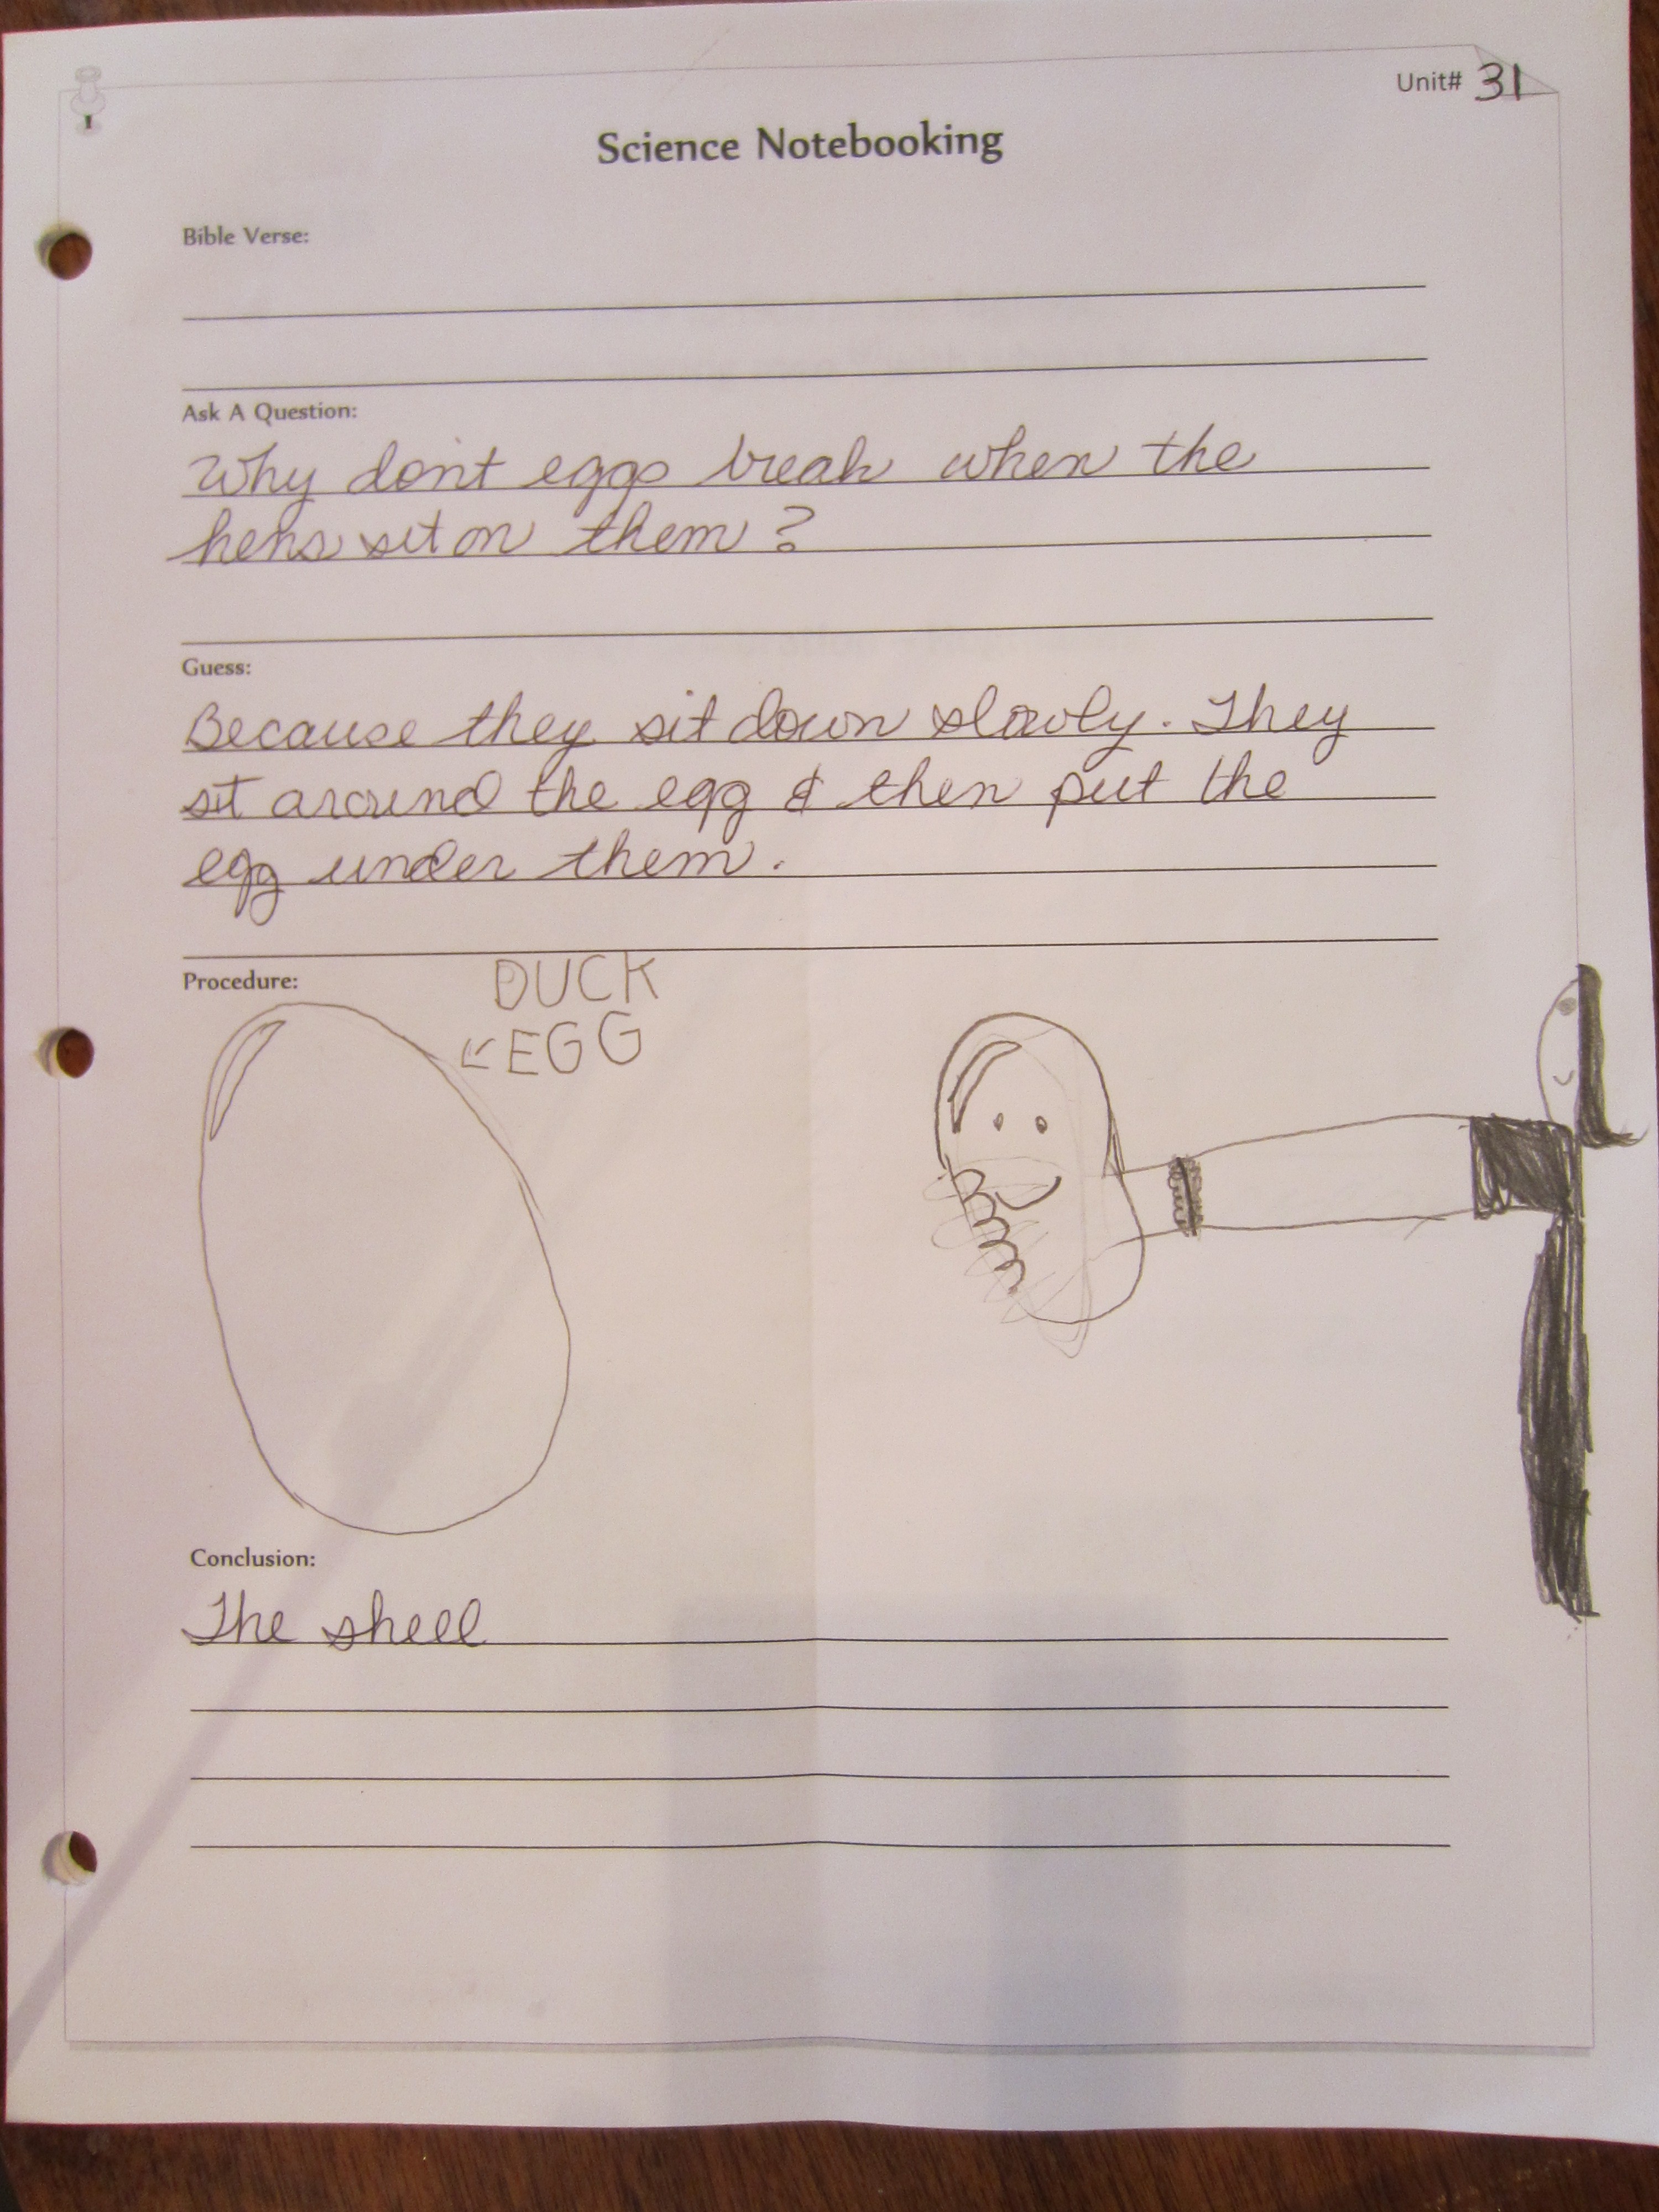 Unit# 31
Science Notebooking
Bible Verse:
Ask A Question:
Why don't eggs break when the
hens sit on them?
Guess:
Because they sit down slowly. They
sit around the egg & then put the
egg under them.
Procedure:
DUCK
← EGG
Conclusion:
The shell